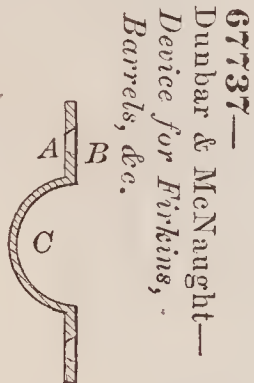 67737—
Dunbar & McNaught—
Device for Firkins,
Barrels, &c.
A B
C